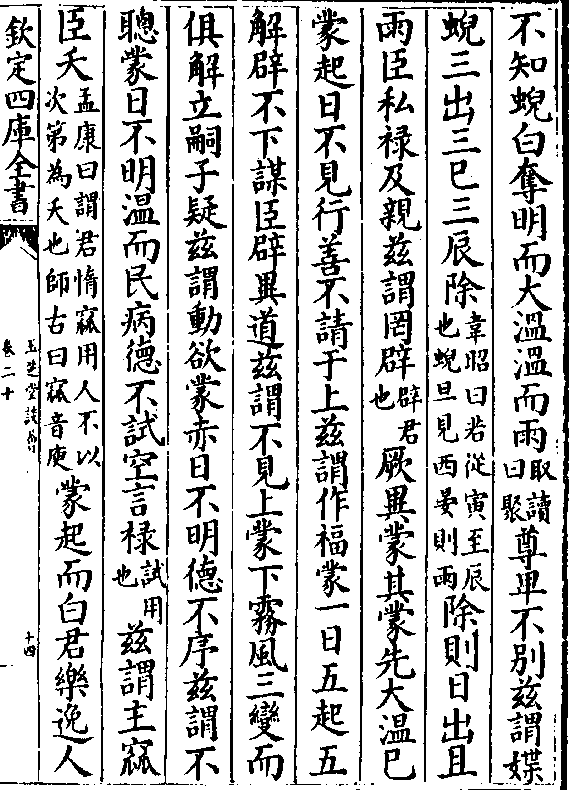 不知蜺白奪明而大溫溫而雨取讀曰聚尊卑不別茲謂媟
蜺三出三已三辰除韋昭曰若從寅至辰也蜺旦見西晏則雨除則日出且
雨臣私祿及親茲謂罔辟辟君也厥異蒙其蒙先大溫已
蒙起日不見行善不請于上茲謂作福蒙一日五起五
解辟不下謀臣辟異道茲謂不見上蒙下霧風三變而
俱解立嗣子疑茲謂動欲蒙赤日不明德不序茲謂不
聰蒙日不明溫而民病德不試空言祿試用也茲謂主窳
臣夭孟康曰謂君惰窳用人不以次第為夭也師古曰窳音庾蒙起而白君樂逸人
欽定四庫全書
玉芝堂談薈
卷二十
十四